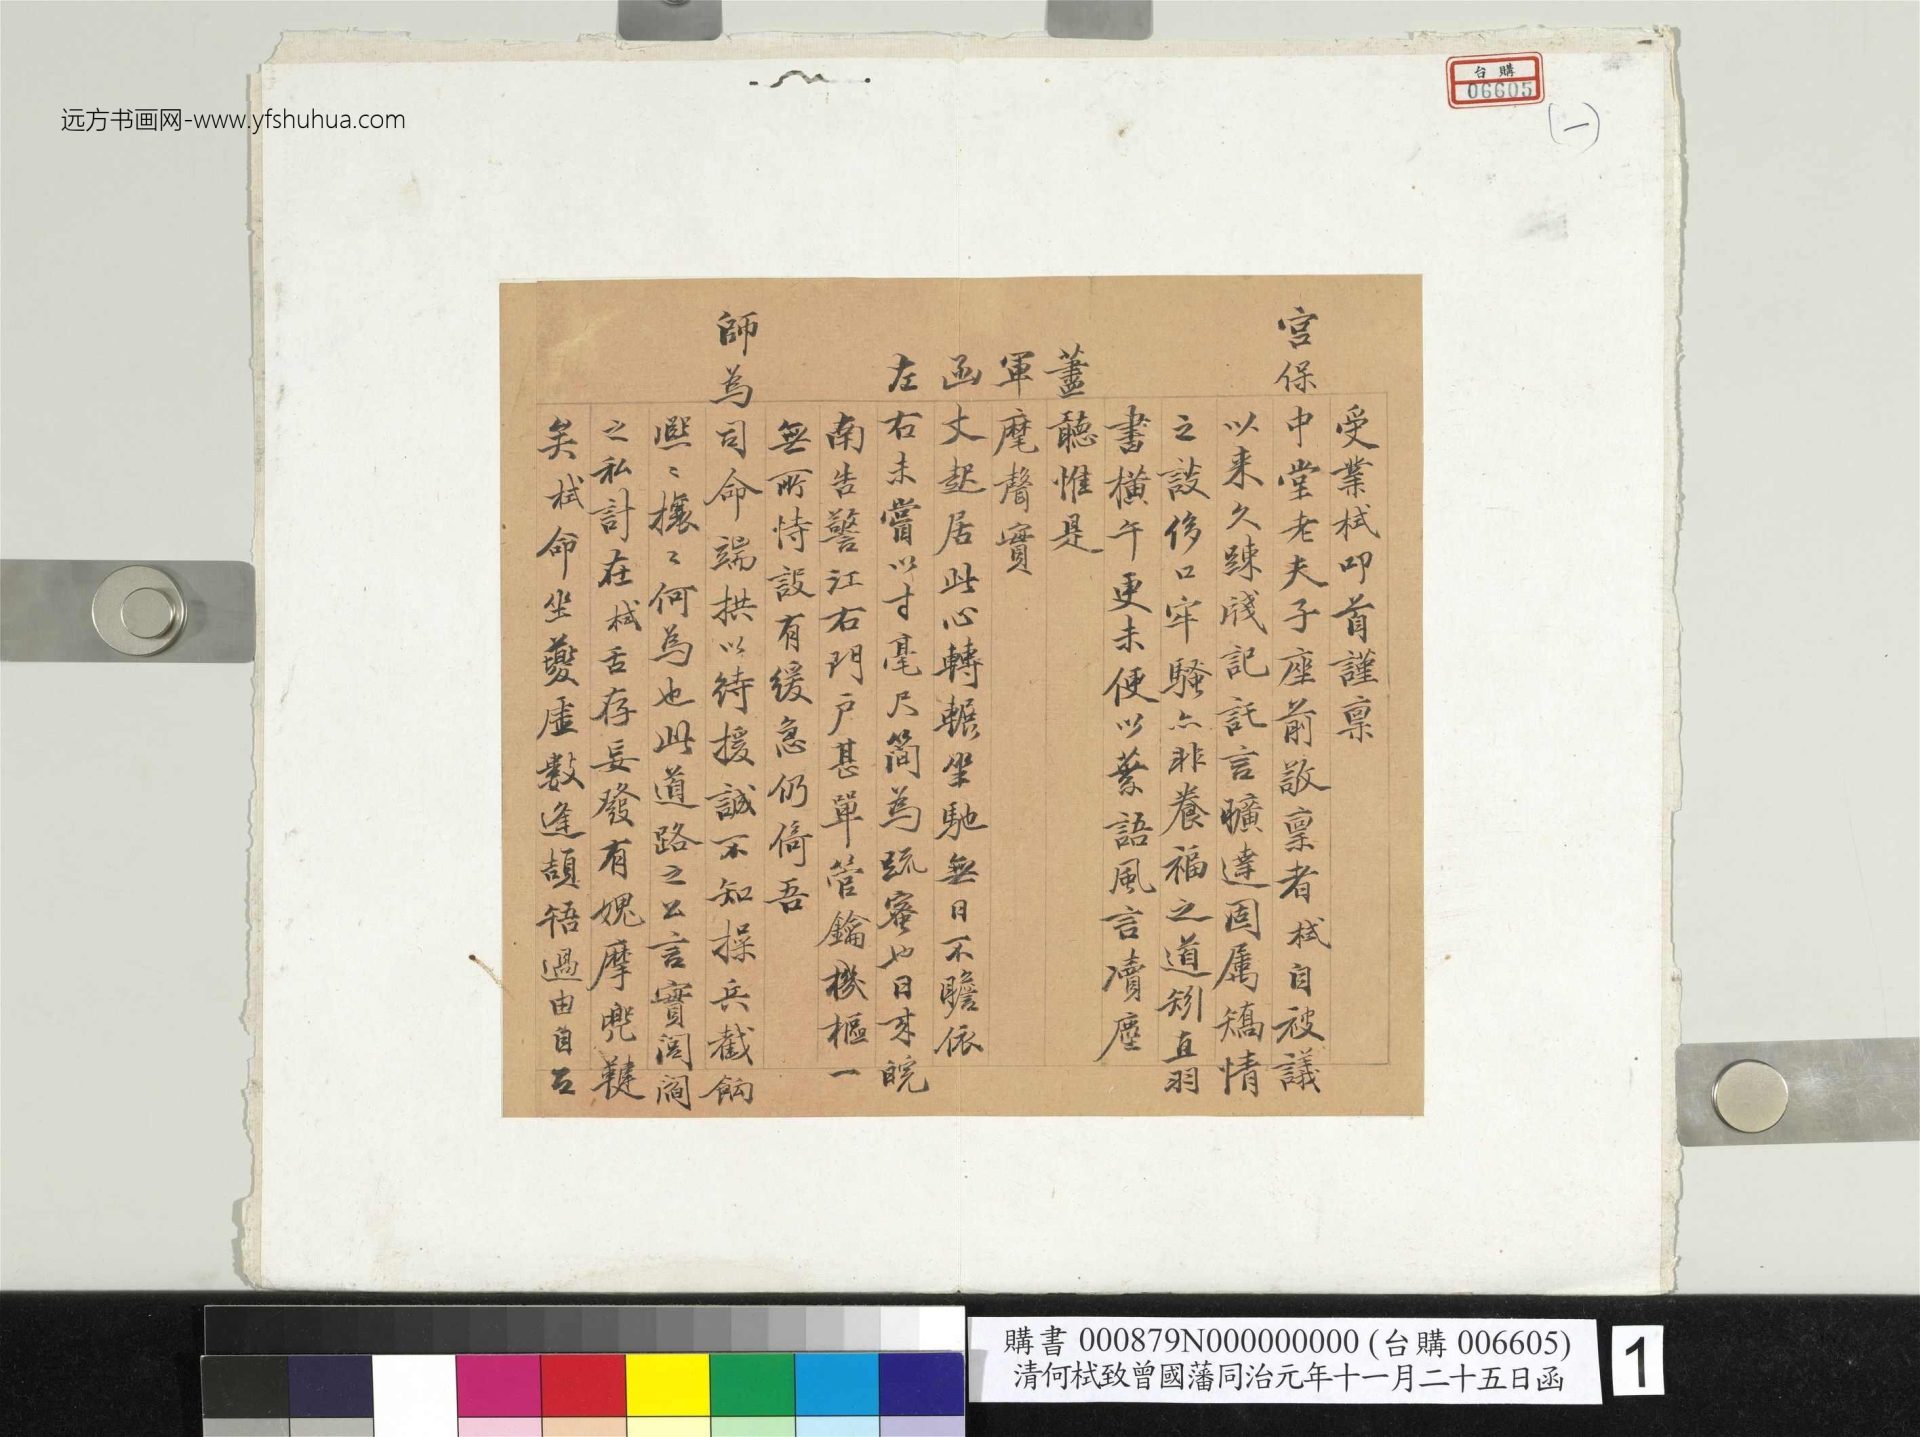 远方书画网-www.yfshuhua.com
台購
06605
(一)
受業栻叩首謹稟
宮保中堂老夫子座前敬稟者栻自被議
以来久踈牋記託言曠達固屬矯情
之談侈口牢騷亦非養福之道矧直羽
書橫午更未便以蕪語風言凟塵
藎聽惟是
軍麾聲實
函丈起居此心轉輾坐馳無日不瞻依
左右未嘗以寸毫尺簡為疏密也日来皖
南告警江右門户甚單管鑰機樞一
無所恃設有緩急仍倚吾
師為司命端拱以待援誠不知操兵截餉
熙〻攘〻何為也此道路之公言實閭閻
之私計在栻舌存妄發有媿摩兜鞬
矣栻命坐虛數逢頡牾過由自
購書 000879N000000000 (台購 006605)
清何栻致曾國藩同治元年十一月二十五日函
1